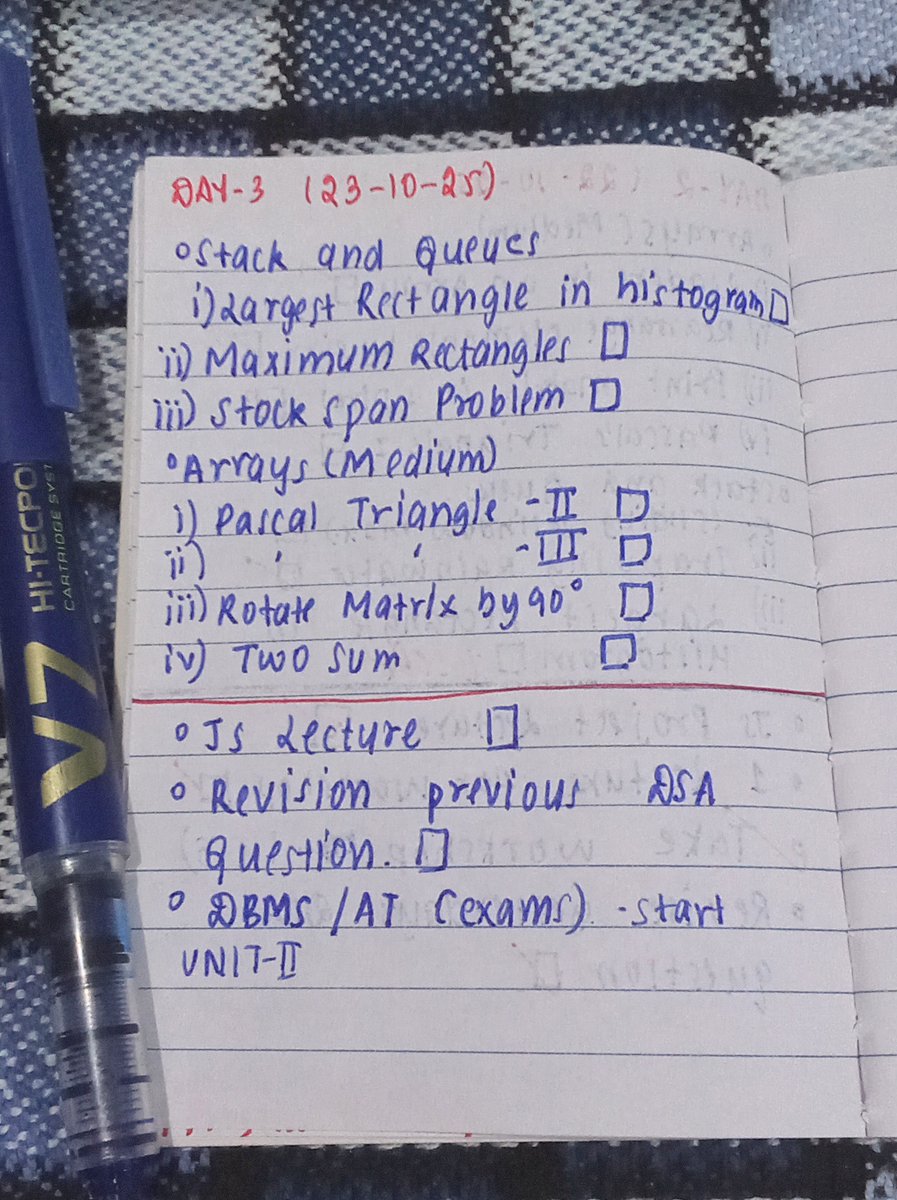 DAY-3 (23-10-25)
Stack and Queues
i) Largest Rectangle in histogram
ii) Maximum Rectangles
iii) Stock span Problem
Arrays (Medium)
i) Pascal Triangle - II
ii) ' ' - III
iii) Rotate Matrix by 90°
iv) Two Sum
Js Lecture
Revision previous DSA
Question.
DBMS / AT (exams). - start
UNIT-II
V7
HI-TECPO
CARTRIDGE SYST